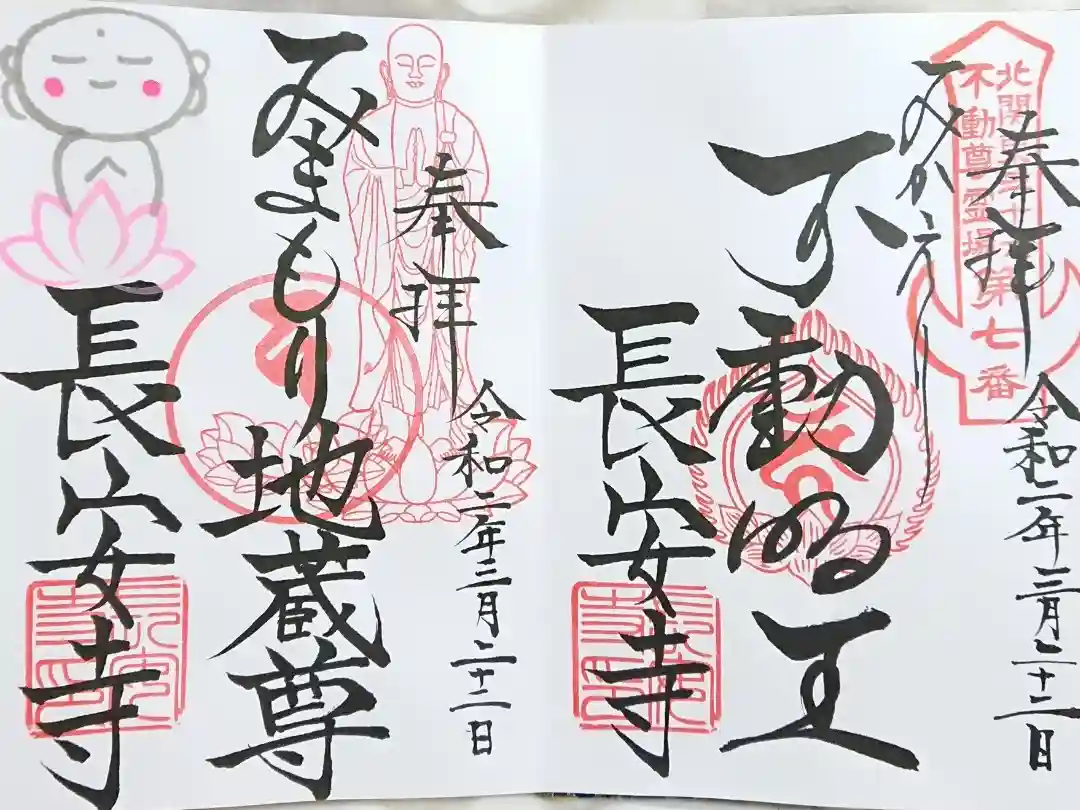 北関東三十六
不動尊霊場
第七番
奉拝
令和二年三月二十二日
みがわり
不動明王
長安寺
長安寺印
奉拝
令和二年三月二十二日
みまもり地蔵尊
長安寺
長安寺印